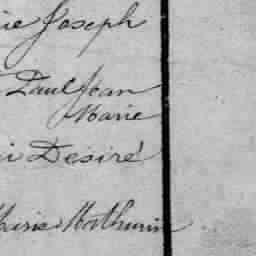 ie Joseph
Paul Jean
Marie
i Désiré
Marie Mathurin